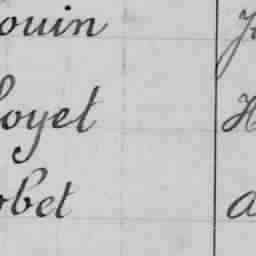 ouin
oyet
obet